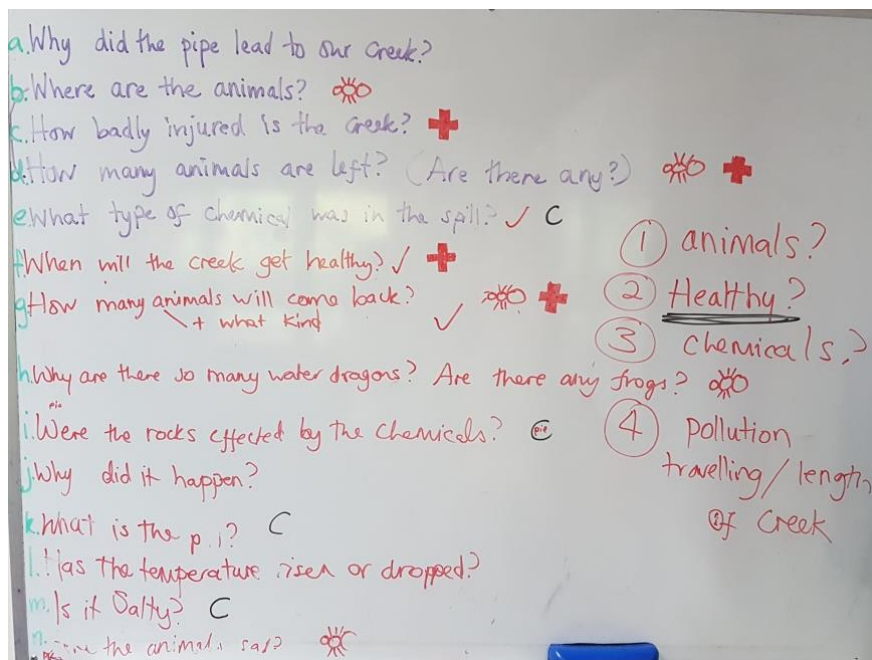 a. Why did the pipe lead to our creek?
b. Where are the animals?
c. How badly injured is the creek?
d. How many animals are left? (Are there any?)
e. What type of chemical was in the spill? ✓ C
f. When will the creek get healthy? ✓
g. How many animals will come back? ✓
+ what kind
h. Why are there so many water dragons? Are there any frogs?
pie
i. Were the rocks effected by the chemicals? C pie
j. Why did it happen?
k. What is the C
l. Has the temperature risen or dropped?
m. Is it Salty? C
n. the animals
1 animals?
2 Healthy?
3 chemicals?
4 pollution
travelling/length
of creek